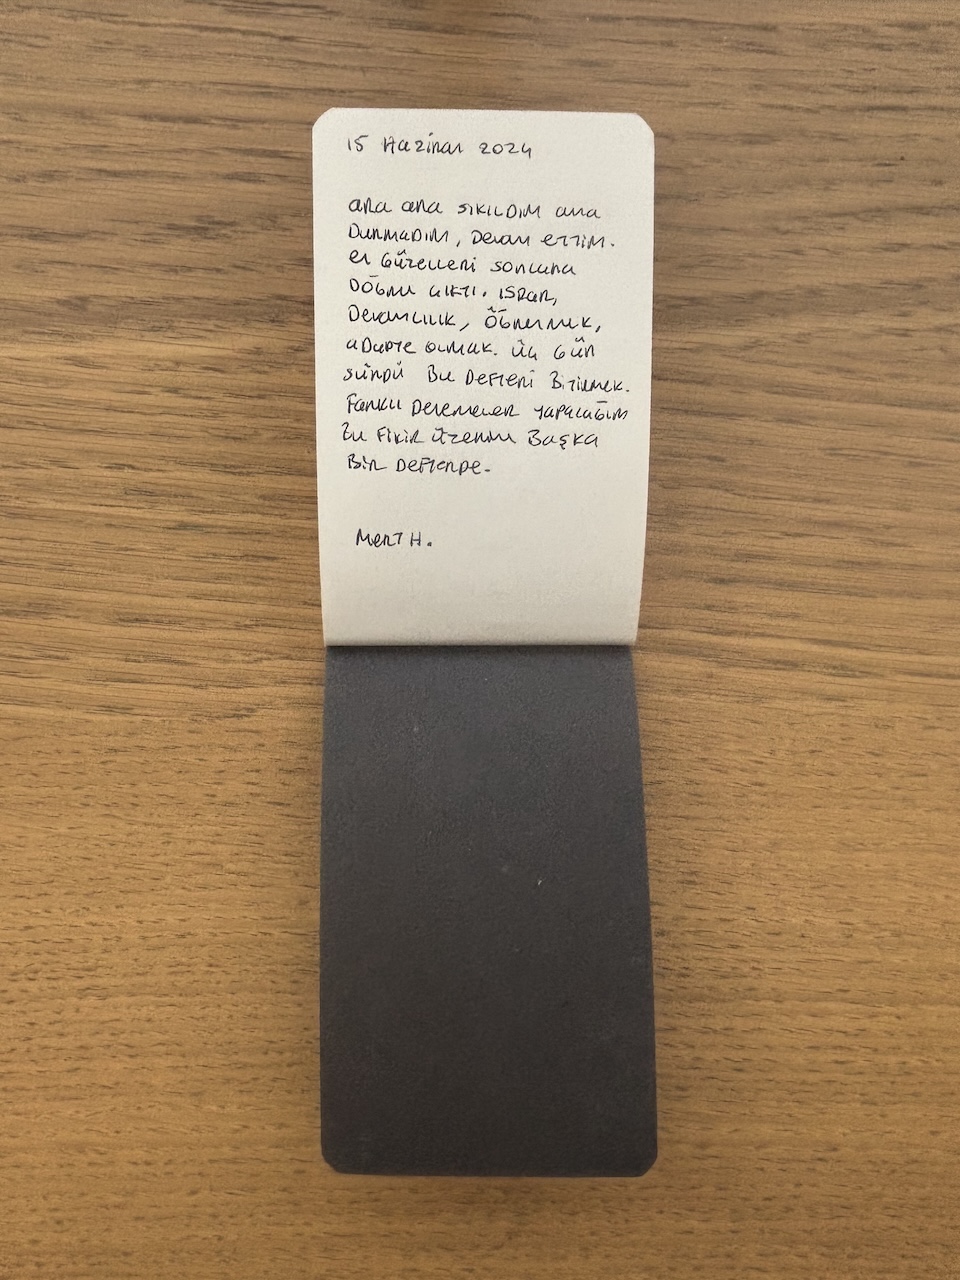 15 Haziran 2024
ara ara sıkıldım ama
durmadım, devam ettim.
en güzelleri sonlara
doğru çıktı. ısrar,
devamlılık, öğrenmek,
adapte olmak. üç gün
sürdü bu defteri bitirmek.
Farklı denemeler yapacağım
bu fikir üzerine başka
bir defterde.
Mert H.